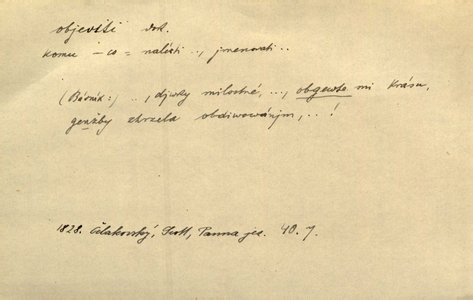 objeviti dok.
komu – co = nalézti .., jmenovati ..
(Básník:) .., djwky milostné, .., obgewte mi krásu,
genžby zhrzela obdiwowáným, .. !
1828. Čelakovský, Scott, Panna jez. 40. 7.